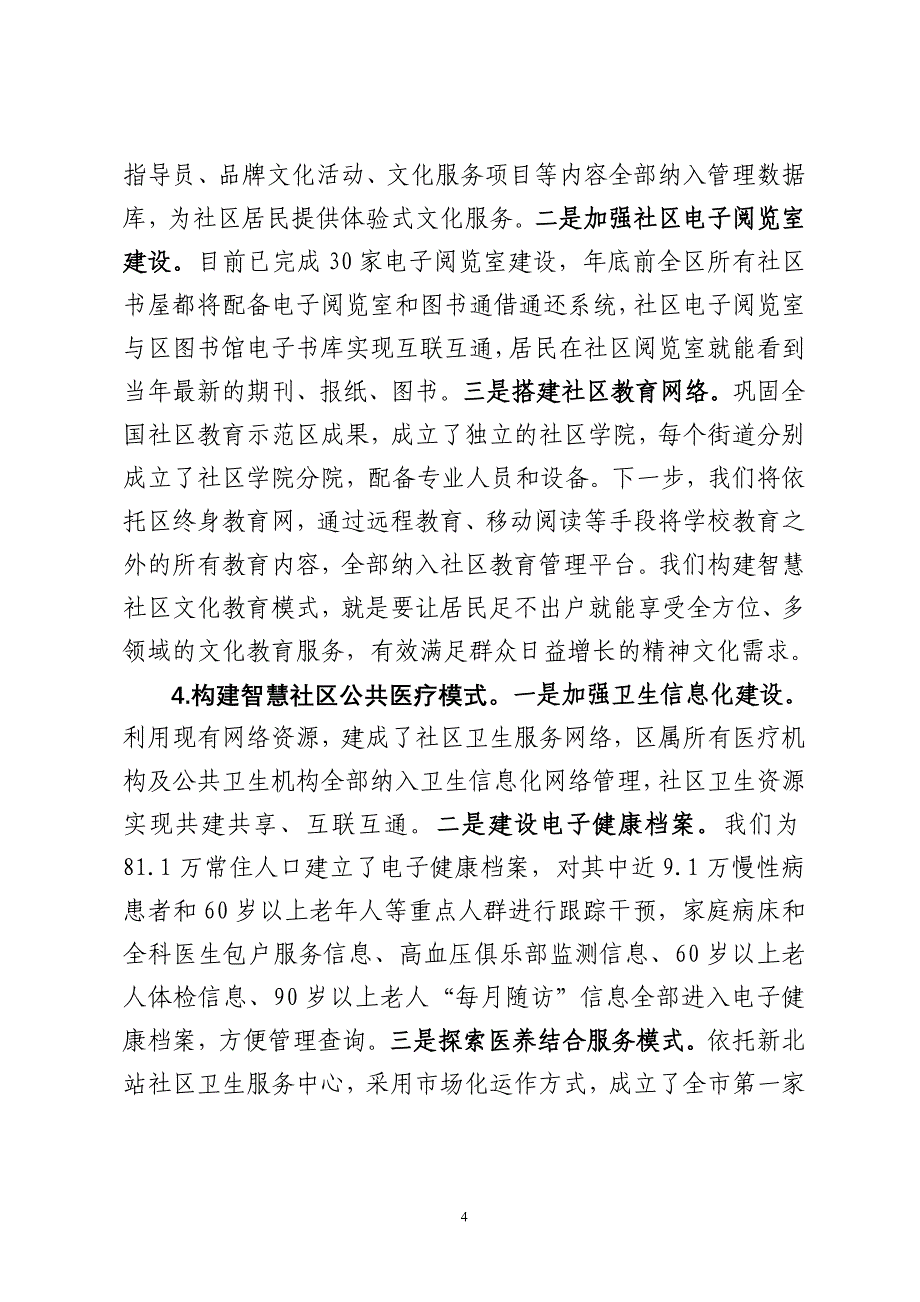 指导员、品牌文化活动、文化服务项目等内容全部纳入管理数据
库，为社区居民提供体验式文化服务。二是加强社区电子阅览室
建设。目前已完成 30 家电子阅览室建设，年底前全区所有社区
书屋都将配备电子阅览室和图书通借通还系统，社区电子阅览室
与区图书馆电子书库实现互联互通，居民在社区阅览室就能看到
当年最新的期刊、报纸、图书。三是搭建社区教育网络。巩固全
国社区教育示范区成果，成立了独立的社区学院，每个街道分别
成立了社区学院分院，配备专业人员和设备。下一步，我们将依
托区终身教育网，通过远程教育、移动阅读等手段将学校教育之
外的所有教育内容，全部纳入社区教育管理平台。我们构建智慧
社区文化教育模式，就是要让居民足不出户就能享受全方位、多
领域的文化教育服务，有效满足群众日益增长的精神文化需求。
4.构建智慧社区公共医疗模式。一是加强卫生信息化建设。
利用现有网络资源，建成了社区卫生服务网络，区属所有医疗机
构及公共卫生机构全部纳入卫生信息化网络管理，社区卫生资源
实现共建共享、互联互通。二是建设电子健康档案。我们为
81.1 万常住人口建立了电子健康档案，对其中近 9.1 万慢性病
患者和 60 岁以上老年人等重点人群进行跟踪干预，家庭病床和
全科医生包户服务信息、高血压俱乐部监测信息、60 岁以上老
人体检信息、90 岁以上老人“每月随访”信息全部进入电子健
康档案，方便管理查询。三是探索医养结合服务模式。依托新北
站社区卫生服务中心，采用市场化运作方式，成立了全市第一家
4